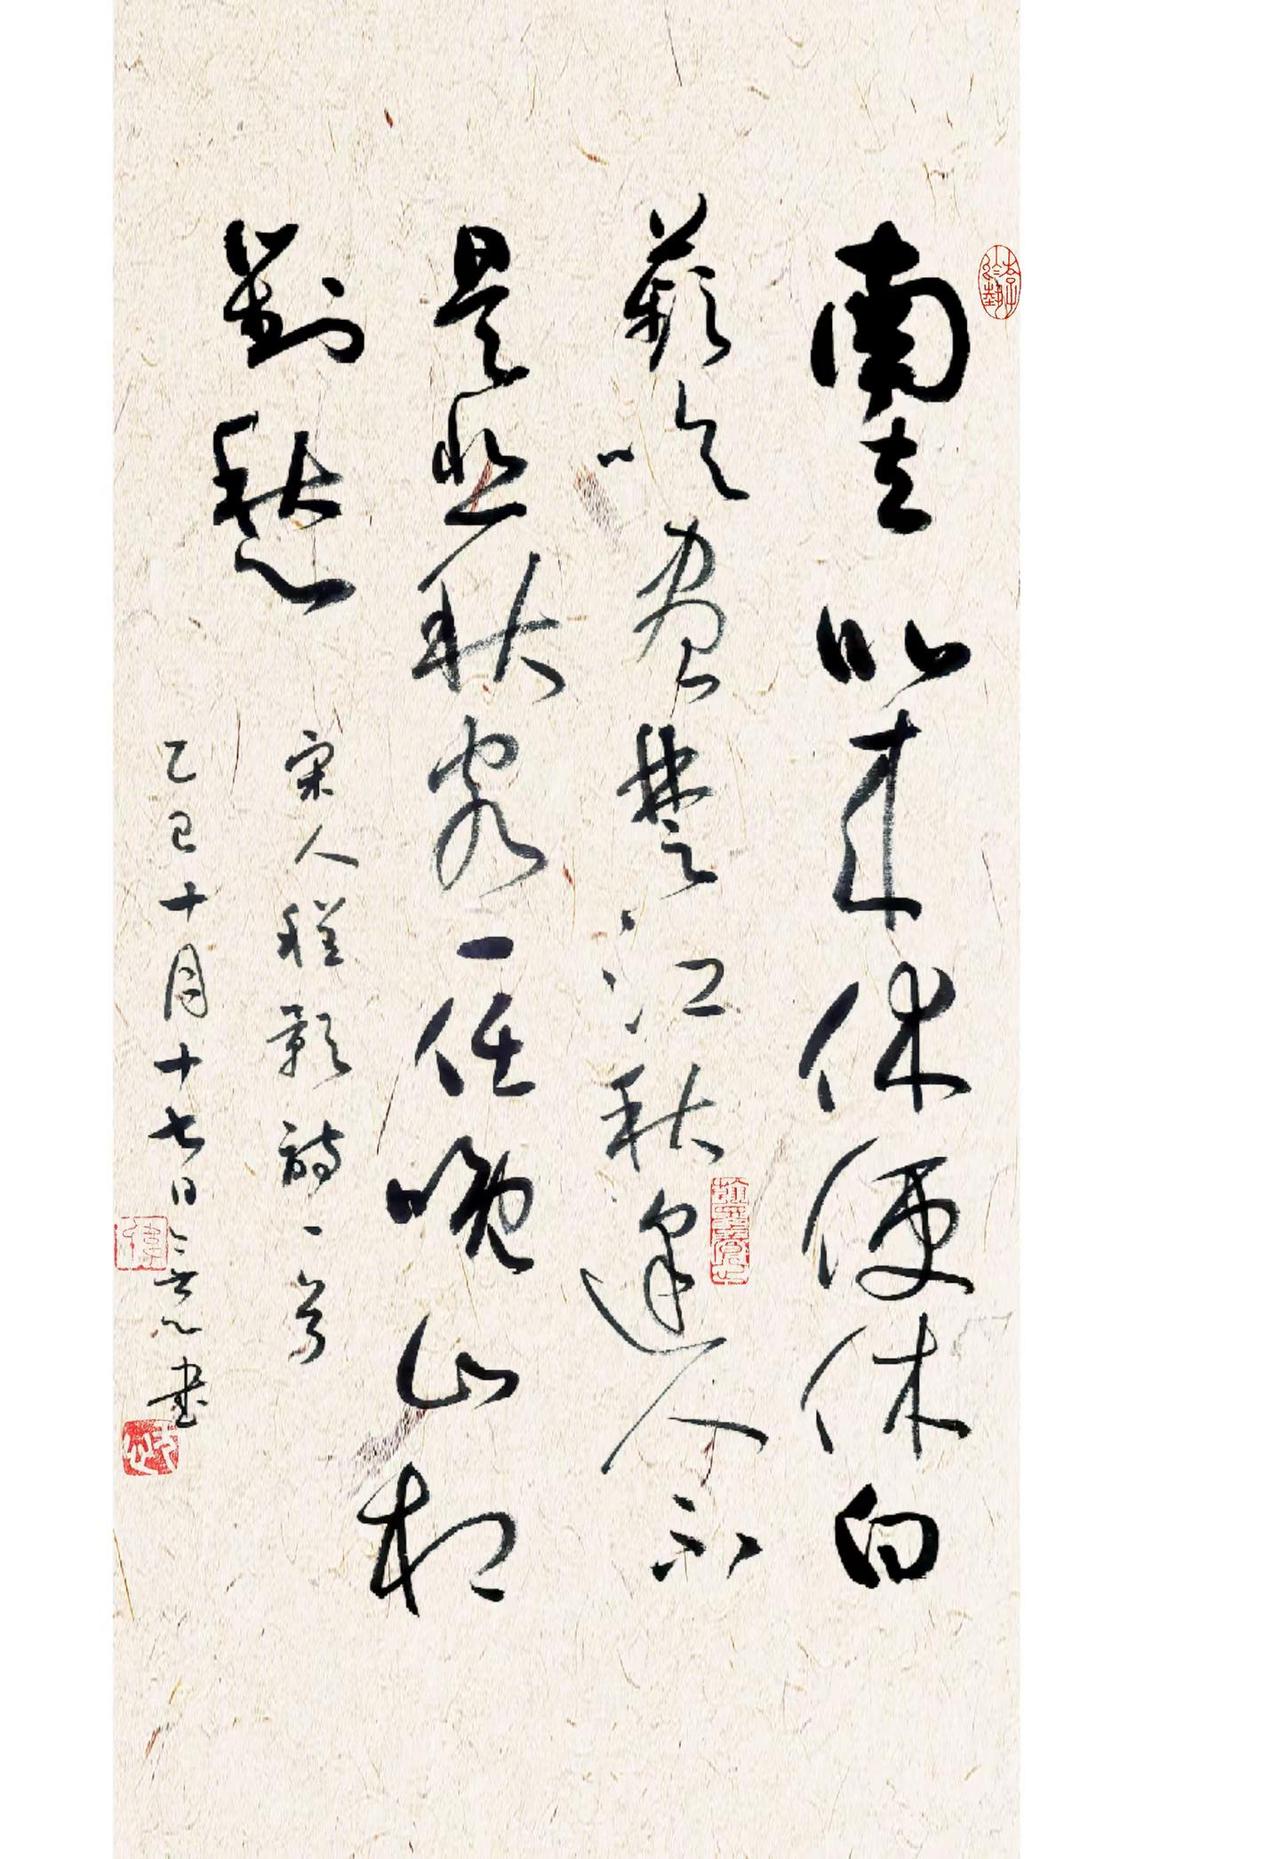 南去北来休便休白
蘋吹盡楚江秋道人不
是悲秋客一任晚山相
對愁
宋人程顥詩一首
乙巳十月十七日書